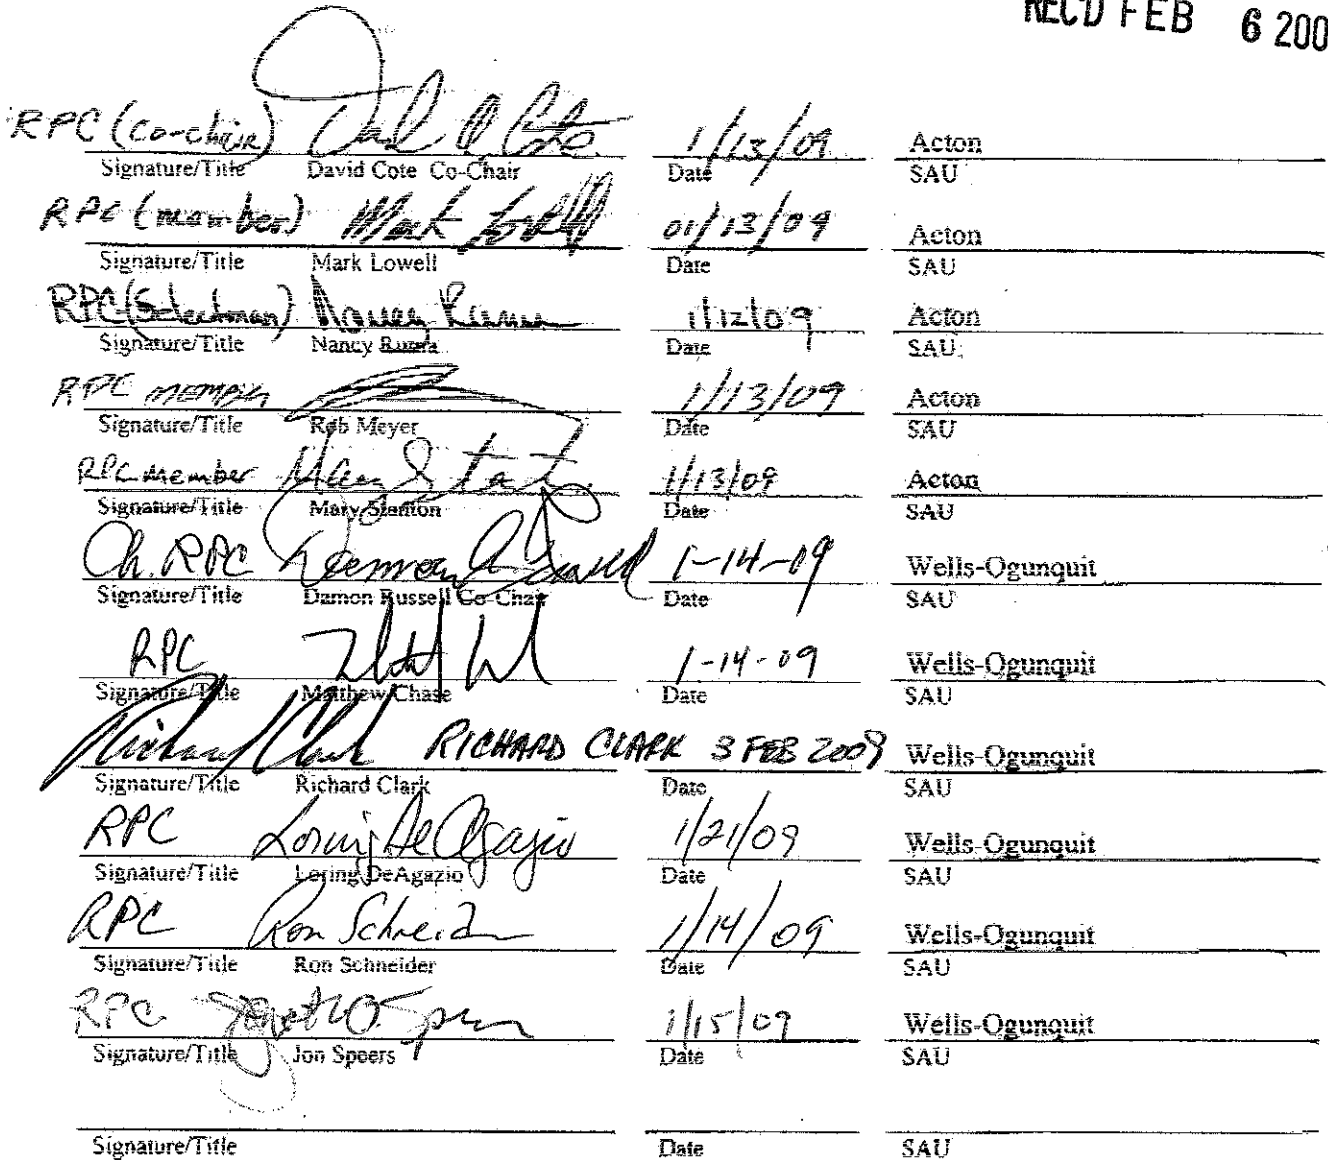 REC'D FEB 6 200
RPC (Co-chair) David Cote 1/13/09 Acton
Signature/Title David Cote Co-Chair Date SAU
RPC (member) Mark Lowell 01/13/09 Acton
Signature/Title Mark Lowell Date SAU
RPC (Selectman) Nancy 1/12/09 Acton
Signature/Title Nancy Date SAU
RPC MEMBER 1/13/09 Acton
Signature/Title Rob Meyer Date SAU
RPC Member Mary Stanton 1/13/09 Acton
Signature/Title Mary Stanton Date SAU
Ch. RPC 1-14-09 Wells-Ogunquit
Signature/Title Damon Russell Co-Chair Date SAU
RPC 1-14-09 Wells-Ogunquit
Signature/Title Matthew Chase Date SAU
Richard Clark RICHARD CLARK 3 FEB 2009 Wells-Ogunquit
Signature/Title Richard Clark Date SAU
RPC Loring DeAgazio 1/21/09 Wells-Ogunquit
Signature/Title Loring DeAgazio Date SAU
RPC Ron Schneider 1/14/09 Wells-Ogunquit
Signature/Title Ron Schneider Date SAU
RPC 1/15/09 Wells-Ogunquit
Signature/Title Jon Speers Date SAU
Signature/Title Date SAU